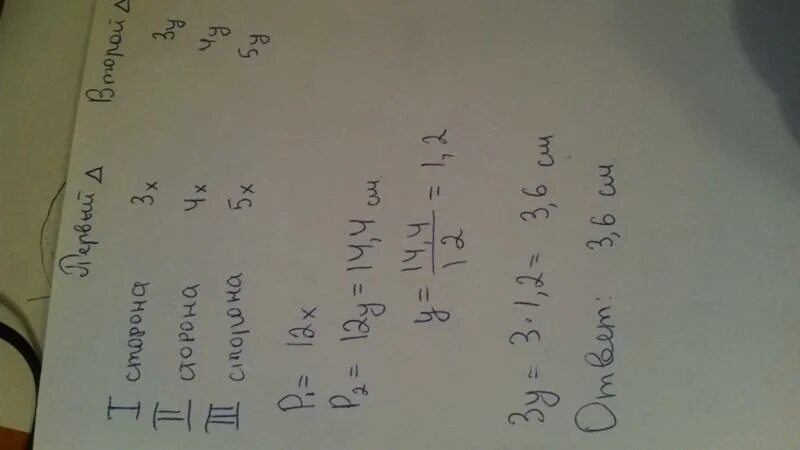 Первый Δ Второй Δ
I сторона 3x 3y
II сторона 4x 4y
III сторона 5x 5y
P₁ = 12x
P₂ = 12y = 14,4 см
y = 14,4/12 = 1,2
3y = 3·1,2 = 3,6 см
Ответ: 3,6 см